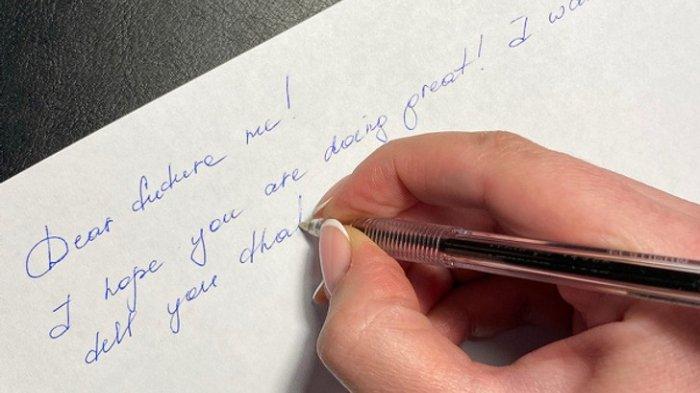 Dear future me!
I hope you are doing great! I wa
tell you that